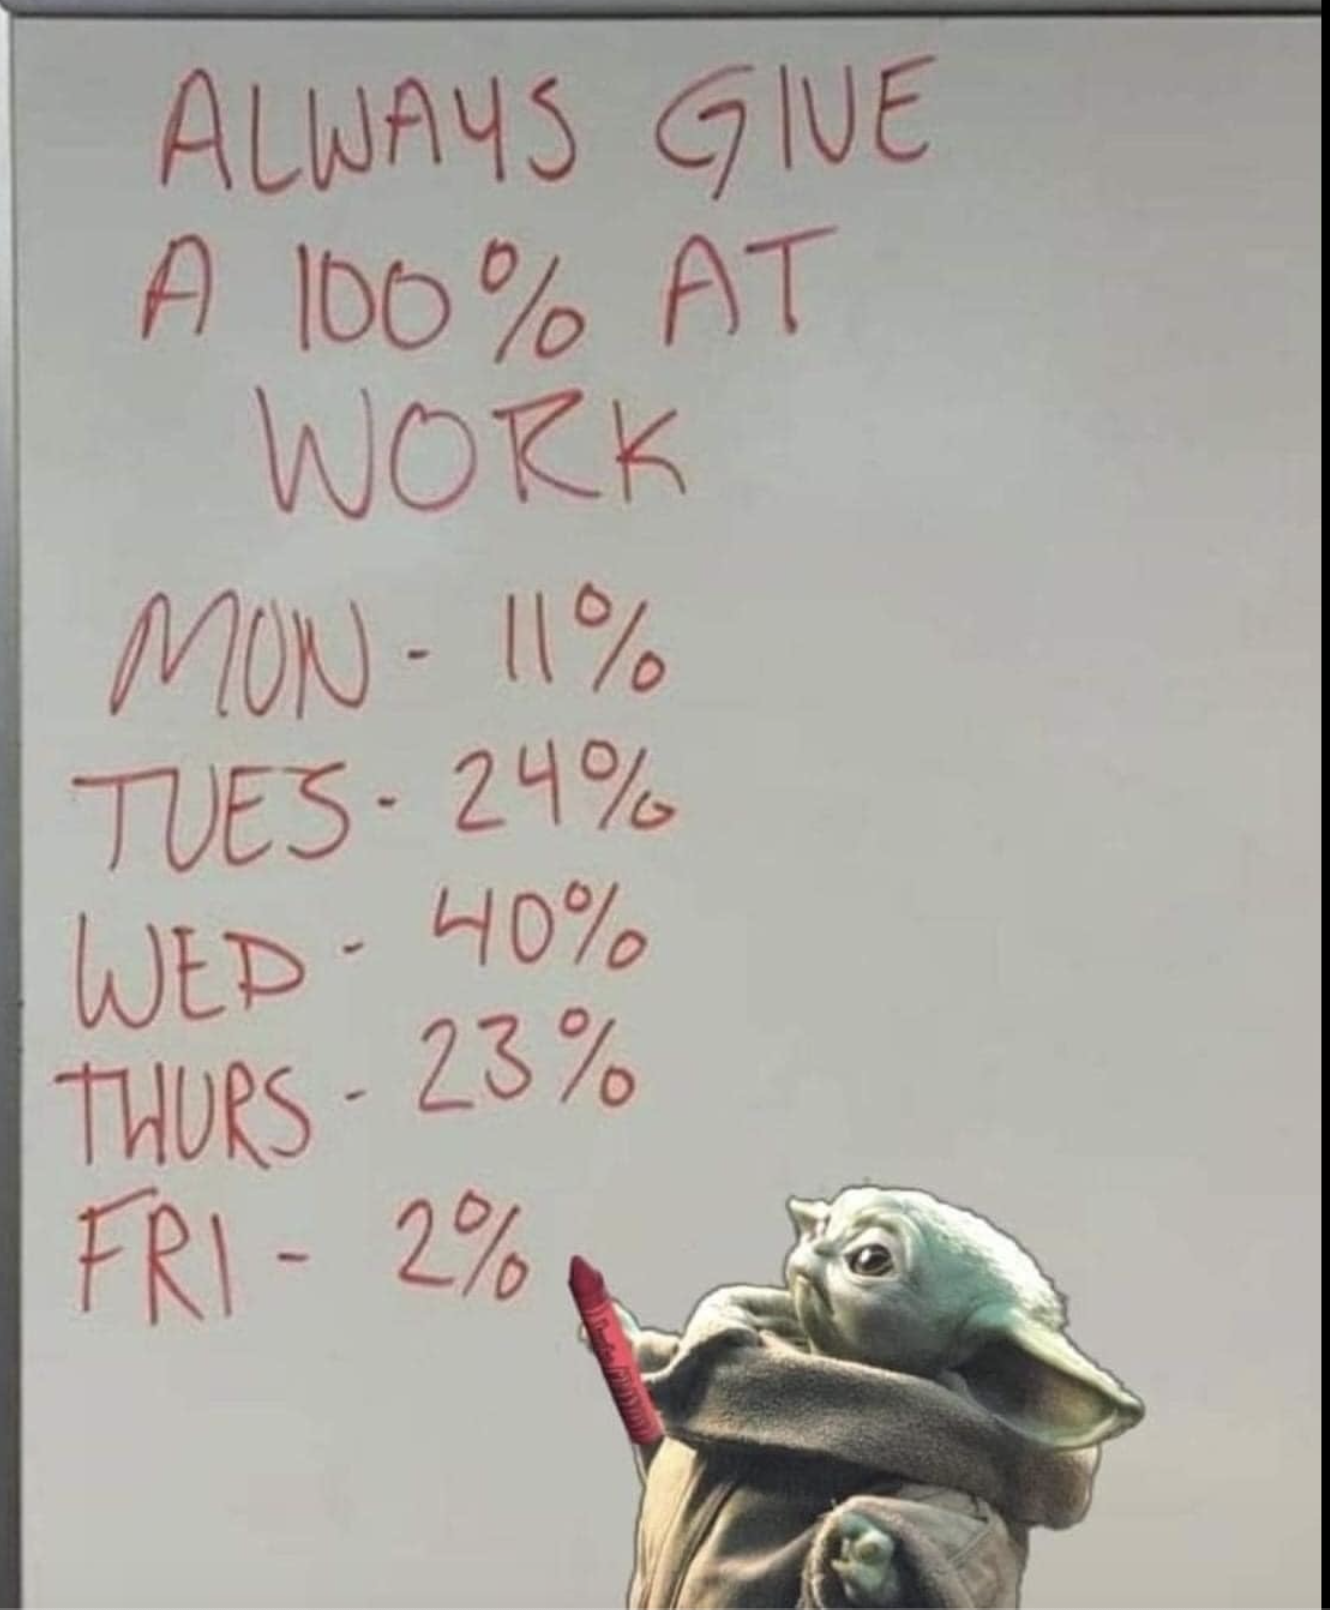 ALWAYS GIVE
A 100% AT
WORK
MON - 11%
TUES - 24%
WED - 40%
THURS - 23%
FRI - 2%